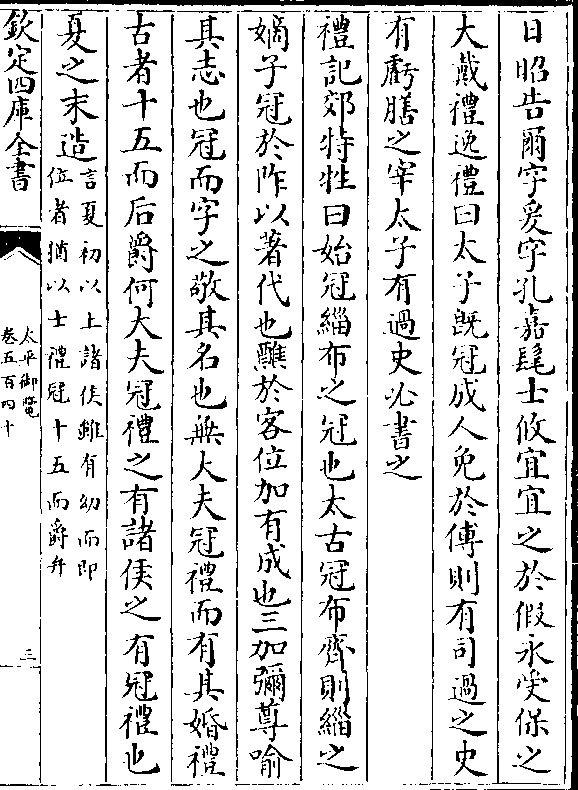 日昭告爾字爰字孔嘉髦士攸宜宜之於假永受保之
大戴禮逸禮曰太子旣冠成人免於傅則有司過之史
有虧膳之宰太子有過史必書之
禮記郊特牲曰始冠緇布之冠也太古冠布齊則緇之
嫡子冠於阼以著代也醮於客位加有成也三加彌尊喻
其志也冠而字之敬其名也無大夫冠禮而有其婚禮
古者十五而后爵何大夫冠禮之有諸侯之有冠禮也
夏之末造
言夏初以上諸侯雖有幼而即
位者猶以士禮冠十五而爵弁
欽定四庫全書
太平御覽
卷五百四十
三